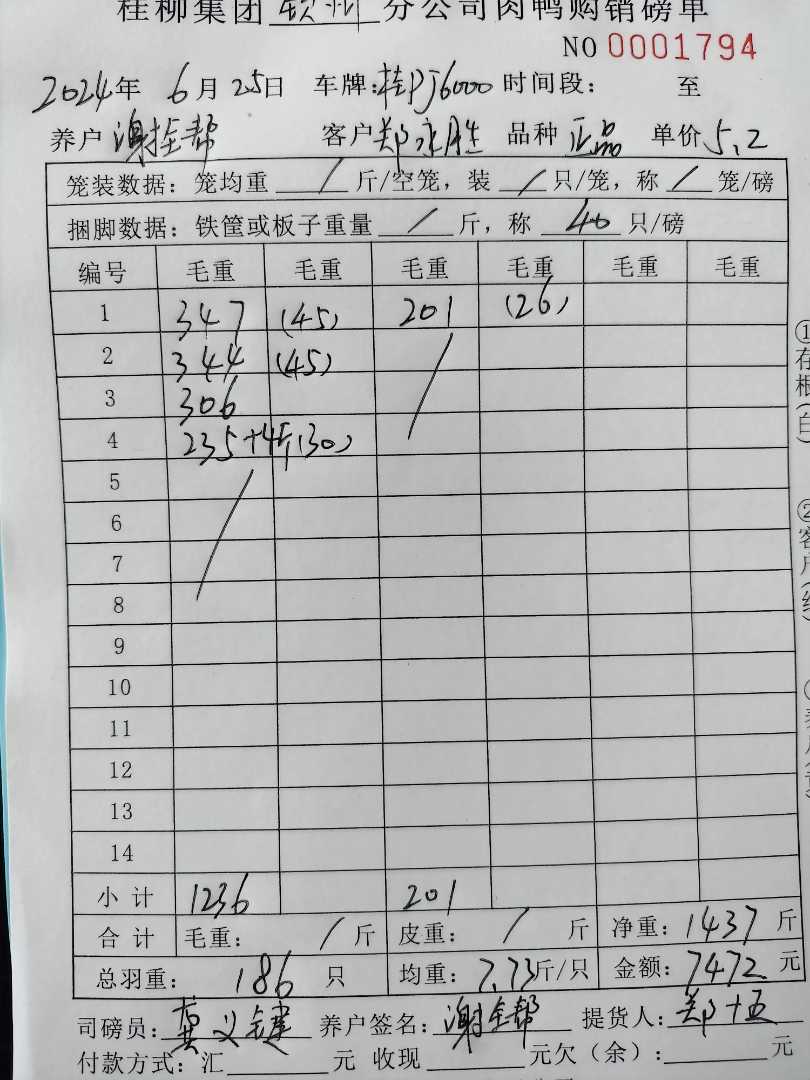 桂柳集团 钦州 分公司肉鸭购销磅单
NO 0001794
2024年 6月25日 车牌:桂PJ6000 时间段: 至
养户 谢拴帮 客户 郑永胜 品种 正品 单价 5.2
笼装数据: 笼均重 / 斤/空笼, 装 / 只/笼, 称 / 笼/磅
捆脚数据: 铁筐或板子重量 / 斤, 称 40 只/磅
编号 毛重 毛重 毛重 毛重 毛重 毛重
1 347 (45) 201 (26)
2 344 (45)
3 306
4 235+4斤(30)
5
6
7
8
9
10
11
12
13
14
小计 1236 201
合计 毛重: / 斤 皮重: / 斤 净重: 1437 斤
总羽重: 186 只 均重: 7.73斤/只 金额: 7472 元
司磅员: 龚义键 养户签名: 谢拴帮 提货人: 郑十五
付款方式: 汇 元 收现 元欠(余): 元
①存根(白)
②客户(红)